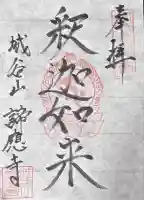 奉拝
釈迦如来
城谷山
諦應寺